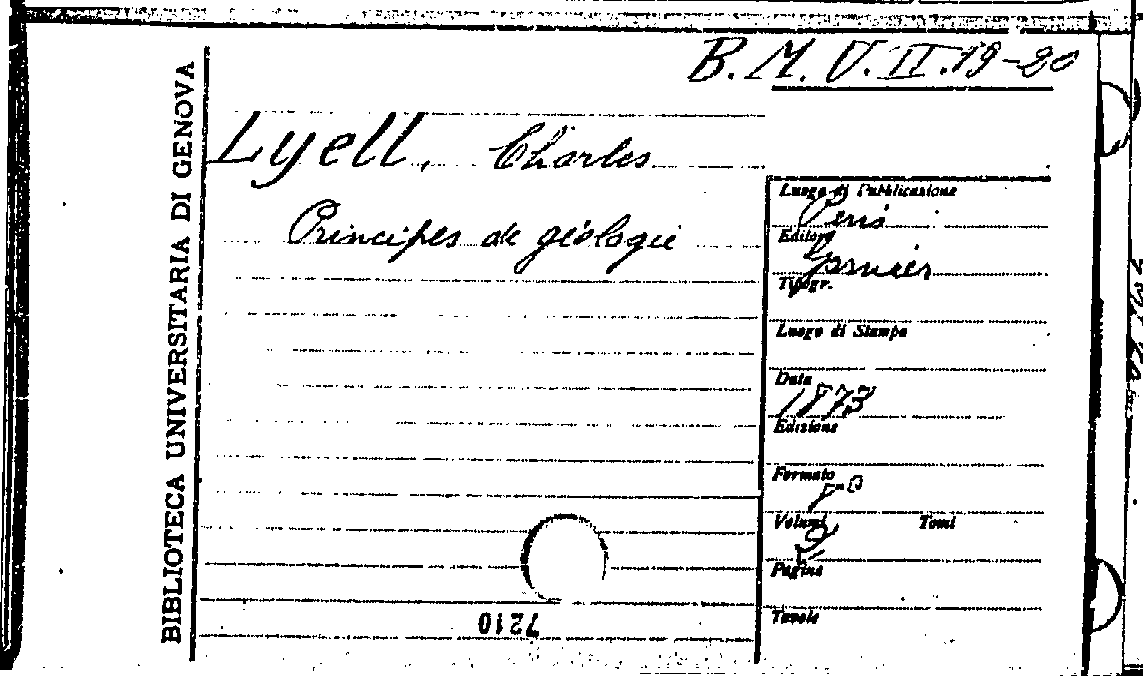 B. M. V. II. 19-20
BIBLIOTECA UNIVERSITARIA DI GENOVA
Lyell, Charles
Principes de géologie
Luogo di Pubblicazione
Paris
Editore
Garnier
Tipogr.
Luogo di Stampa
Data
1873
Edizione
Formato
8º
Volumi Tomi
2
Pagine
Tavole
7210